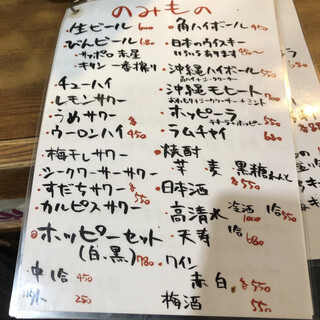 のみもの
生ビール 600
びんビール 680
サッポロ 赤星
キリン 一番搾り
チューハイ
レモンサワー
うめサワー
ウーロンハイ 450
梅干しサワー
シークワーサーサワー
すだちサワー 550
カルピスサワー
ホッピーセット
(白、黒) 780
中 1合 450
250
角ハイボール 450
日本のウイスキー
いろいろあります 450〜
沖縄ハイボール 550
沖縄モヒート 700
ホッピーラ
ラムチャイ
焼酎
芋 麦 黒糖
日本酒 550
高清水 1合 550
天寿 1合 680
ワイン
赤 白 550
梅酒 550